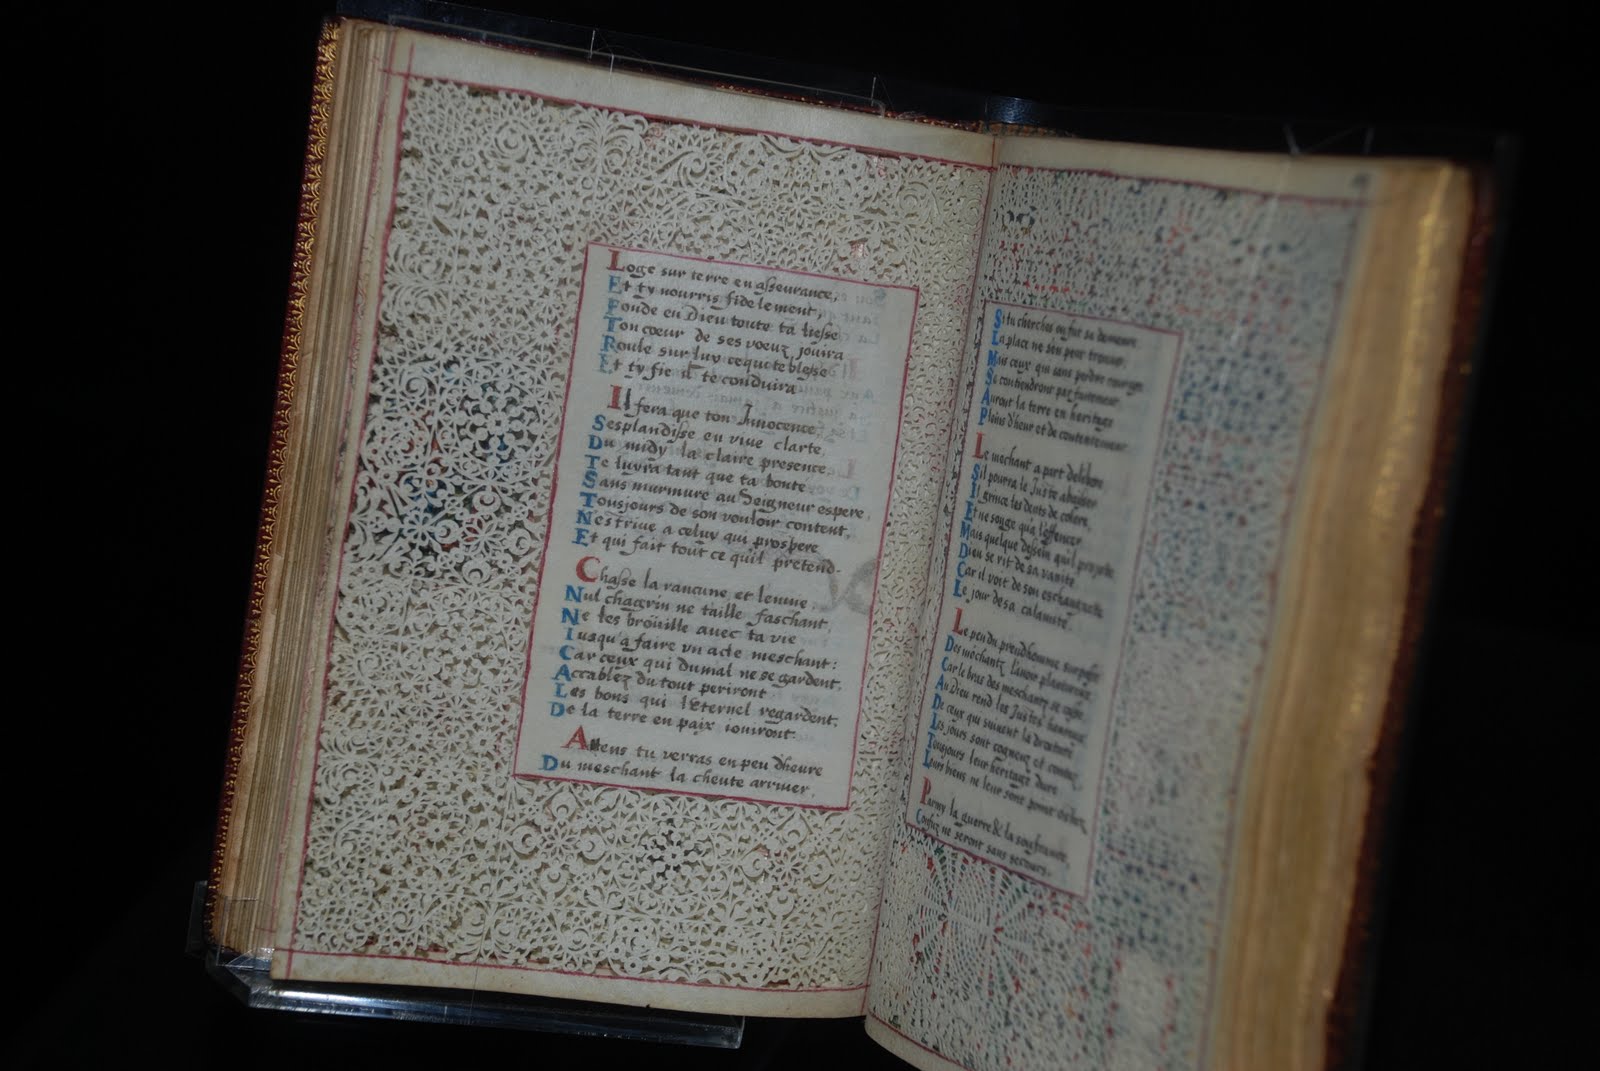 Loge sur terre en asseurance,
Et ty nourris fidelement,
Fonde en Dieu toute ta liesse
Ton cœur de ses vœuz jouira
Roule sur luy ce qui te blesse
Et ty fie il te conduira
Il fera que ton Innocence,
Sesplandisse en viue clarte,
Du midy la claire presence,
Te luyra tant que ta bonte
Sans murmure au Seigneur espere,
Tousjours de son vouloir content,
Nestriue a celuy qui prospere
Et qui fait tout ce quil pretend-
Chasse la rancune et lenuie,
Nul chagrin ne taille faschant,
Ne tes broüille auec ta vie
Iusqu'a faire vn acte meschant:
Car ceux qui du mal ne se gardent,
Accablez du tout periront
Les bons qui l'Eternel regardent,
De la terre en paix iouiront.
Attens tu verras en peu dheure
Du meschant la cheute arriuer,
Si tu cherches ou fut sa demeure
La place ne sen peut trouuer,
Mais ceux qui sans perdre courage
Se contiendront
Auront la terre en heritage
Pleins d'heur et de contentement
Le mechant a part
Sil pourra le Juste abaisser
Il grince les dents de colere,
Et ne songe qua l'offencer
Mais quelque dessein quil projette
Dieu se rit de sa vanite
Car il voit de son eschauguette
Le jour de sa calamite.
Le peu du preudhomme surpasse
Des mechantz l'auoir plantureux
Car le bras des meschants se casse
Au Dieu rend les Justes heureux
De ceux qui suiuent la droiture
Les jours sont cogneuz et contez
Tousjours leur heritage dure
Leurs biens ne leur sont point ostez
Parmy la guerre & la souffrance,
Confuz ne seront sans secours,